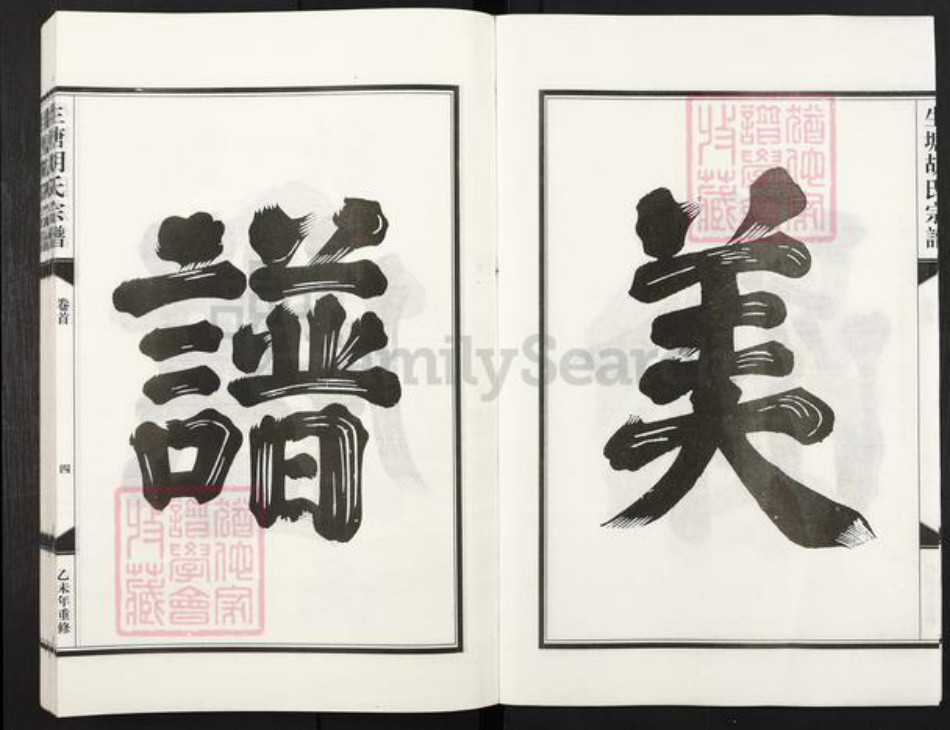 生塘胡氏宗譜
美
猶他家
譜學會
收藏
譜
生塘胡氏宗譜
卷首
四
乙未年重修
猶他家
譜學會
收藏
FamilySearch